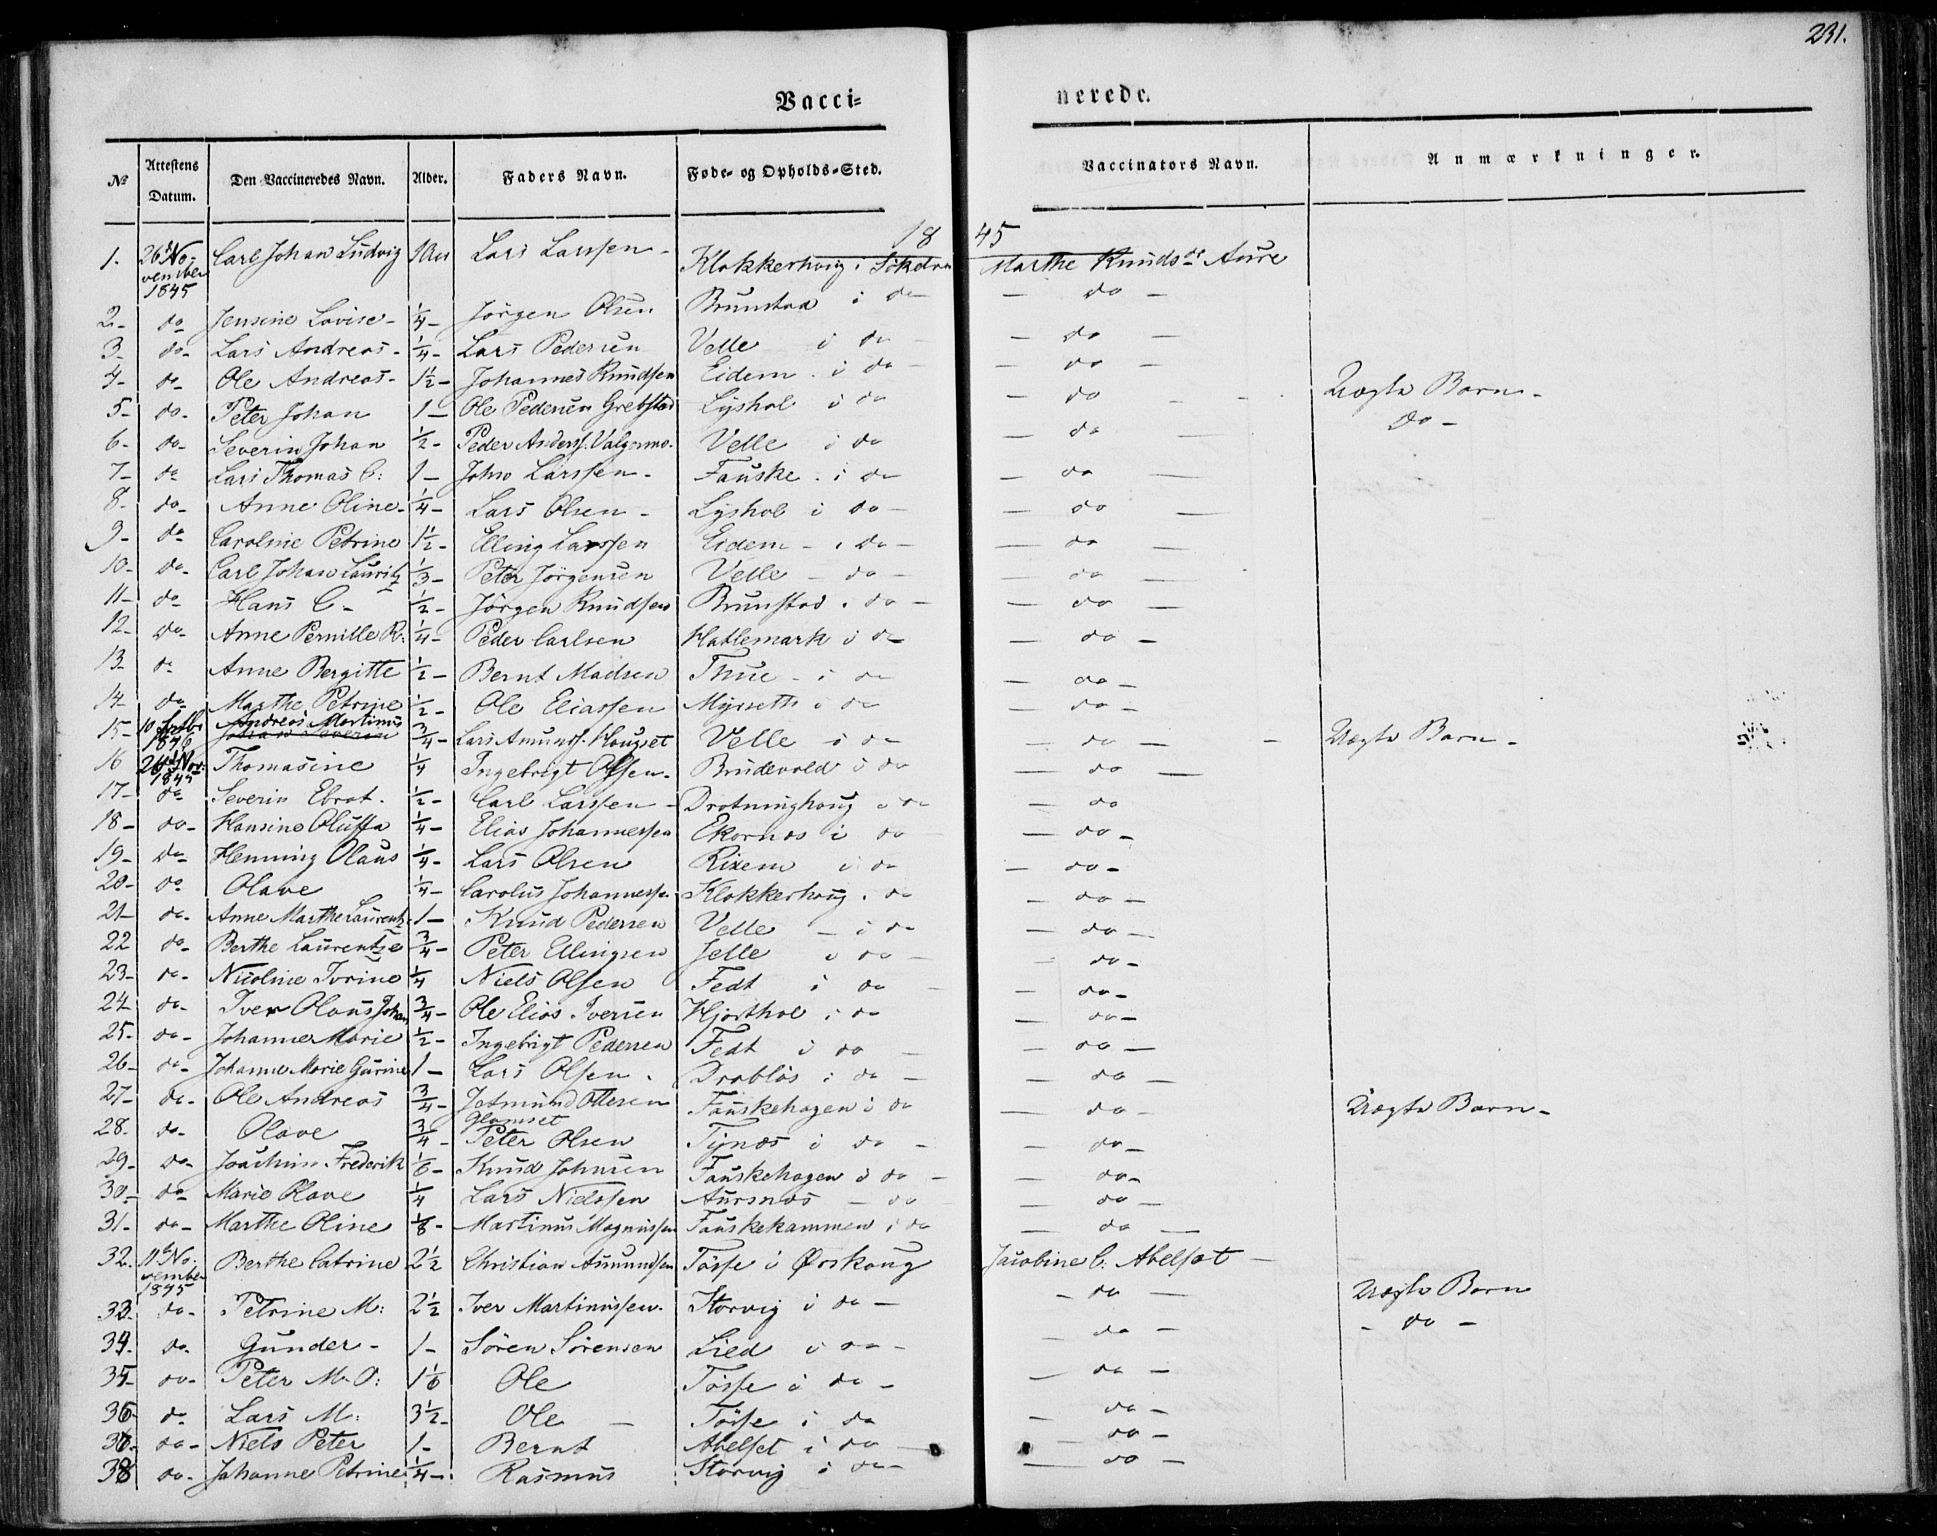 231.
Vacci= nerede.
No Attestens Datum. Den Vaccineredes Navn. Alder. Faders Navn. Føde- og Opholds-Sted. Vaccinators Navn. Anmærkninger.
18 45
1. 26 November 1845 Carl Johan Ludvig 1 Lars Larssen - Klokkerhoug i Søkelven Marthe Knudsdr Aure
2- do Jensine Lovise- 1/4- Jörgen Olsen Brunstad i do - do -
3- do- Lars Andreas- 1/4- Lars Pedersen Velle i do - do -
4- do- Ole Andreas- 1 1/2- Johannes Knudsen Eidem i do - do -
5- do- Peter Johan 1- Ole Pedersen Grebstad Lyshol i do - do - Uægte Barn-
6- do- Severin Johan 1/2- Peder Anderss. Valgermo. Velle i do - do - do-
7- do Lars Thomas C: 1- John Larssen- Fauske i do - do -
8- do- Anne Oline- 1/4- Lars Olsen- Lyshol i do - do -
9- do Caroline Petrine 1 1/2- Elling Larssen Eidem- i do- - do -
10- do- Carl Johan Lauritz 1/3- Peter Jörgensen Velle - do - - do -
11- do- Hans C- 1/2- Jörgen Knudsen Brunstad i do - - do -
12- do- Anne Pernille R. 1/4- Peder Carlsen Hatlemark i do - do -
13- do- Anne Bergitte 1/2- Bernt Madsen Thue - i do - do -
14- do- Marthe Petrine 1/2- Ole Eliassen Myrseth i do - do -
15- 10 1846 Andreas Martinus Johan Severin 3/4- Lars Amunds. Hougset Velle i do - do - Uægte Barn-
16 26 Nov: 1845 Thomasine 1/4 Ingebrigt Olsen. Brudevold i do - do -
17- do Severin Ebrat. 1/2- Carl Larssen- Drotninghoug i do - do
18- do- Hansine Oluffa 1/4- Elias Johannessen Ekornæs i do - do-
19- do- Henning Olaus 1/4- Lars Olsen Rixem i do - do-
20- do Olave 1/4- Carolus Johannessen Klokkerhoug i do - do -
21- do- Anne Marthe Laurentz 1- Knud Pedersen Velle - i do - do -
22 do- Berthe Laurentze 3/4- Peter Ellingsen Jelle i do - - do-
23- do- Nicoline Ivrine 1/4 Niels Olsen Fedt i do - - do-
24 do- Iver Olaus Johan 3/4- Ole Elias Iversen Hjorthol i do - do-
25- do- Johanne Marie 1/2- Ingebrigt Pedersen Fedt i do - - do -
26- do- Johanne Marie Gurine 1- Lars Olsen. Drabløs i do - - do -
27- do- Ole Andreas 3/4- Jetmund Ottesen Glomset Fauskehagen i do - do - Uægte Barn-
28. do- Olave 3/4- Peter Olsen Tynæs i do - - do-
29- do- Joachim Frederik 1/6- Knud Johnsen Fauskehagen i do - - do-
30- do- Marie Olave 1/4 Lars Nielssen Aursnæs - do - do -
31- do- Marthe Oline 1/8- Martinus Magnussen Fauskekammen i do - do -
32. 11 November 1845 Berthe Catrine 2 1/2 Christian Amundsen Tøsse i Ørskoug Jacobine C. Abelset -
33- do- Petrine M: 2 1/2 Iver Martinussen. Storvig i do - - do - Uægte Barn
34- do- Gunder- 1- Sören Sörensen Lied i do- - do - - do -
35- do- Peter M. O: 1 1/6 Ole Tøsse i do - - do -
36- do- Lars M: 3 1/2- Ole - Tøsse i do - do -
37- do- Niels Peter 1- Bernt Abelset i do - - do -
38 do- Johanne Petrine 1/4- Rasmus Storvig i do- - do -